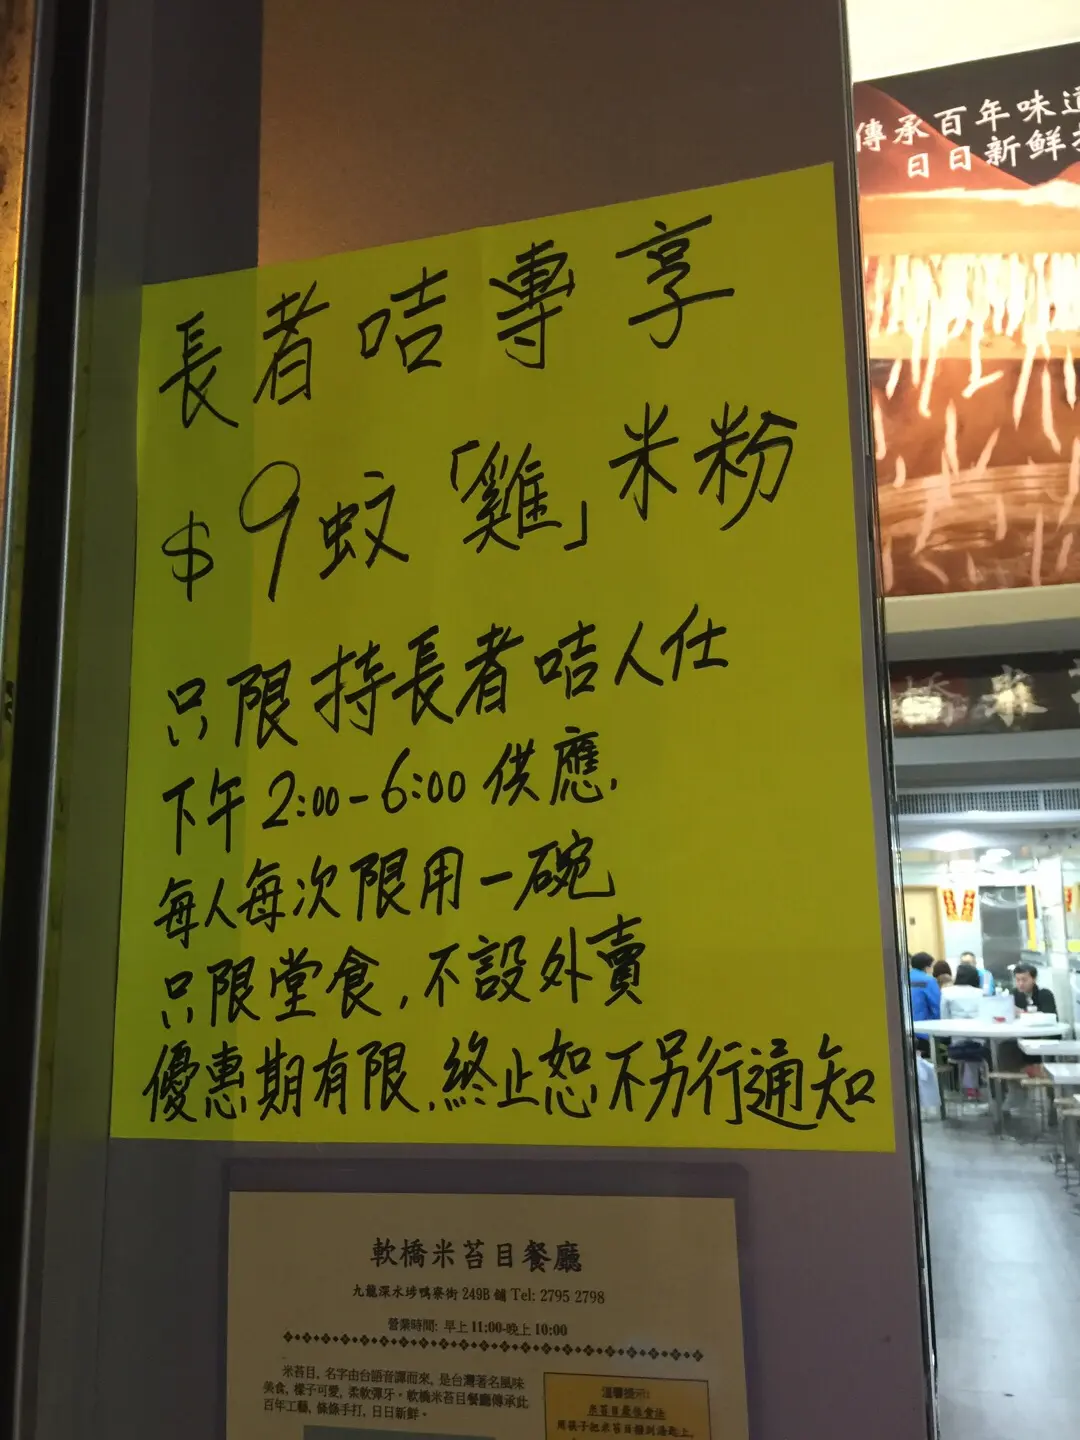 傳承百年味
日日新鮮
長者咭專享
$9蚊「雞」米粉
只限持長者咭人仕
下午2:00-6:00供應.
每人每次限用一碗
只限堂食,不設外賣
優惠期有限.終止恕不另行通知
軟橋米苔目餐廳
九龍深水埗鴨寮街 249B 舖 Tel: 2795 2798
營業時間: 早上 11:00-晚上 10:00
米苔目, 名字由台語音譯而來, 是台灣著名風味
美食, 樣子可愛, 柔軟彈牙。軟橋米苔目餐廳傳承此
百年工藝, 條條手打, 日日新鮮。
溫馨提示:
米苔目最佳食法
用筷子把米苔目饋到湯匙上,